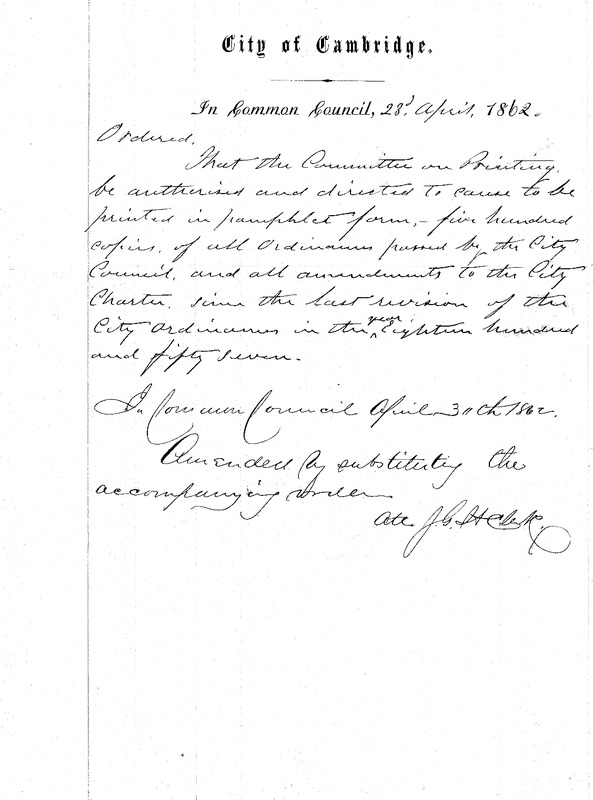 City of Cambridge.
In Common Council, 23d April, 1862.
Ordered,
That the Committee on Printing,
be authorised and directed to cause to be
printed in pamphlet form,- five hundred
copies, of all Ordinances passed by the City
Council, and all amendments to the City
Charter, since the last revision of the
year
City Ordinances in the Eighteen hundred
and fifty seven.
In Common Council April 30th 1862.
Amended by substituting the
accompanying order
Att J.G. Clerk.